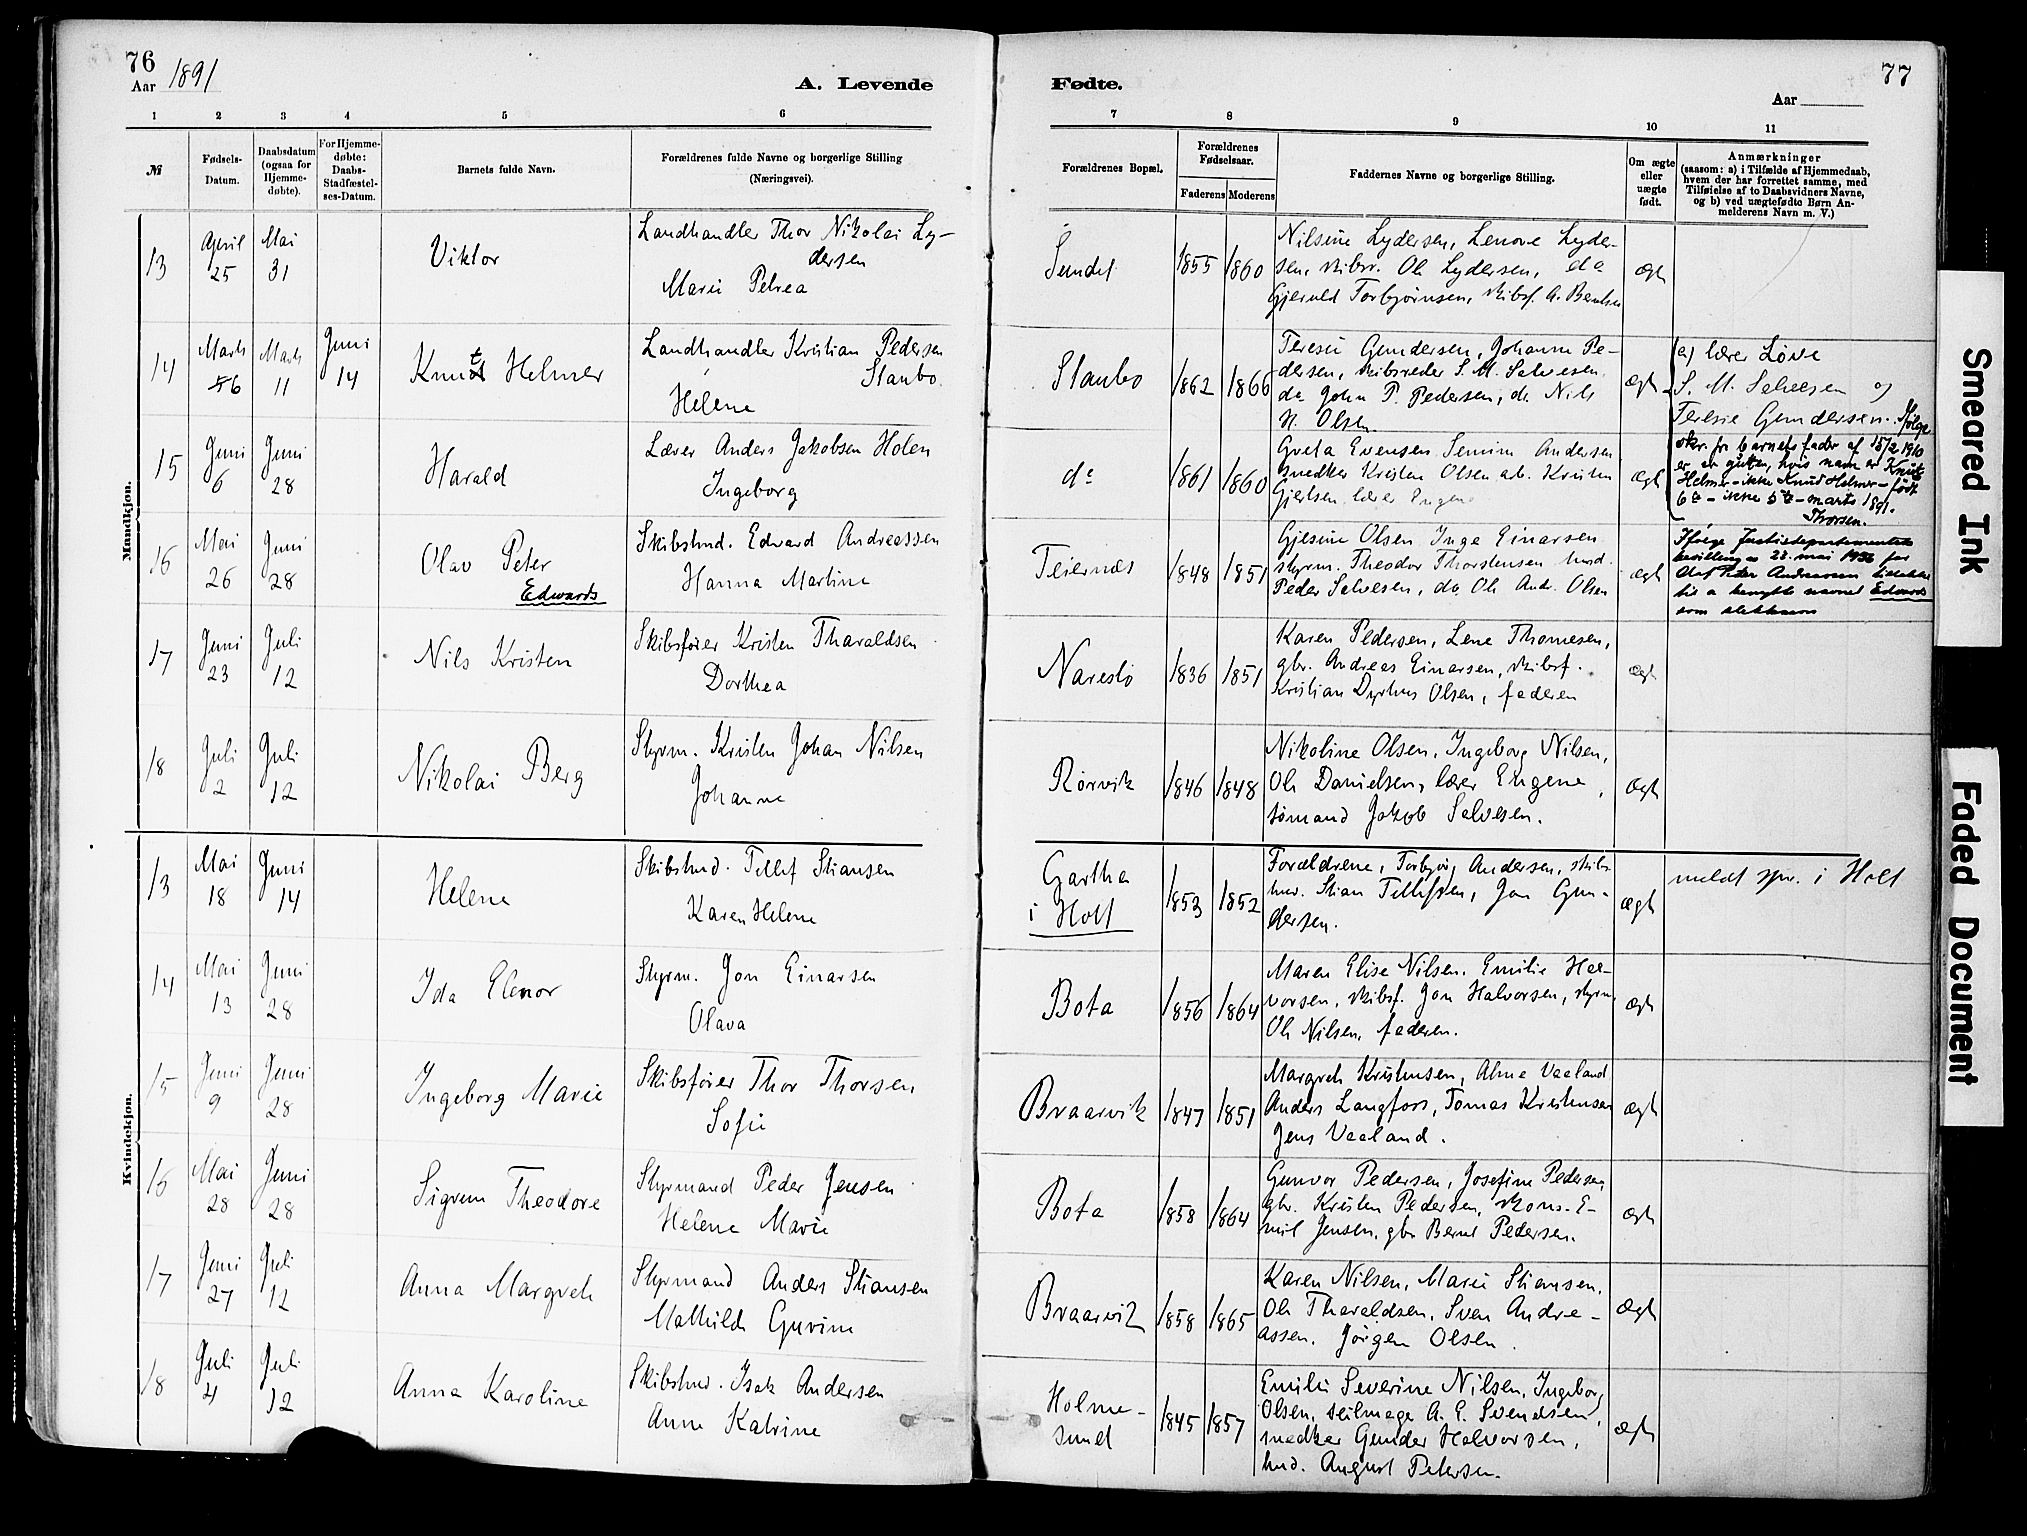 76
Aar 1891
A. Levende
Fødte.
77
Aar
1 2 3 4 5 6 7 8 9 10 11
№
Fødsels-
Datum.
Daabsdatum
(ogsaa for
Hjemme-
døbte).
For Hjemme-
døbte:
Daabs-
Stadfæstel-
ses-Datum.
Barnets fulde Navn.
Forældrenes fulde Navne og borgerlige Stilling
(Næringsvei).
Forældrenes Bopæl.
Forældrenes
Fødselsaar.
Faderens Moderens
Faddernes Navne og borgerlige Stilling.
Om ægte
eller
uægte
født.
Anmærkninger
(saasom: a) i Tilfælde af Hjemmedaab,
hvem der har forrettet samme, med
Tilføielse af to Daabsvidners Navne,
og b) ved uægtefødte Børn An-
melderens Navn m. V.)
Mandkjøn.
13
April
25
Mai
31
Viktor
Landhandler Thor Nikolai Ly-
dersen
Marie Petrea
Sundet
1855 1860
Nilsine Lydersen, Lenore Lyder-
sen, skibsr. Ole Lydersen, do
Gjeruld Torbjørnsen, skibsf. A. Berntsen
ægte
14
Marts
6
Marts
11
Juni
14
Knut Helmer
Landhandler Kristian Pedersen
Staubo.
Helene
Staubo
1862 1866
Teresie Gundersen, Johanne Pe-
dersen, skibsreder S. M. Salvesen
do John P. Pedersen, do Nils
N. Olsen.
ægte
a) lærer Løve
S. M. Salvesen og
Teresie Gundersen. Ifølge
skr. fra barnets fader af 15/2 1910
er er gutten, hvis navn er Knut
Helmer – ikke Knud Helmer – født
6te – ikke 5te – marts 1891.
Thorsen.
15
Juni
6
Juni
28
Harald
Lærer Anders Jakobsen Holen
Ingeborg
do
1861 1860
Greta Evensen, Semine Andersen
snedker Kristen Olsen, arb. Kristen
Gjertsen, lærer Eugene
ægte
16
Mai
26
Juni
28
Olav Peter
Edwards
Skibstmd. Edvard Andreassen
Hanna Martine
Teiernæs
1848 1851
Gjesine Olsen, Inge Einarsen
styrm. Theodor Thorstensen, tmd.
Peder Salvesen, do Ole Andr. Olsen
ægte
Ifølge Justisdepartementets
bevilling av 22. mai 1936 har
Olaf Peter Andreassen tillatelse
til å benytte navnet Edwards
som slektsnavn
17
Juni
23
Juli
12
Nils Kristen
Skibsfører Kristen Tharaldsen
Dorthea
Narestø
1836 1851
Karen Pedersen, Lene Thomesen,
gbr. Andreas Einarsen, skibsf.
Kristian Dyrhus Olsen, faderen
ægte
18
Juli
2
Juli
12
Nikolai Berg
Styrm. Kristen Johan Nilsen
Johanne
Rørvik
1846 1848
Nikoline Olsen, Ingeborg Nilsen,
Ole Danielsen, lærer Eugene,
sømand Jakob Salvesen.
ægte
Kvindekjøn.
13
Mai
18
Juni
14
Helene
Skibstmd. Tellef Stiansen
Karen Helene
Gartha
i Holt
1853 1852
Forældrene, Torbjør Andersen, skibs
tmr. Stian Tellefsen, Jon Gun-
dersen.
ægte
meldt spr. i Holt
14
Mai
13
Juni
28
Ida Elenor
Styrm. Jon Einarsen
Olava
Bota
1856 1864
Maren Elise Nilsen, Emilie Hal-
vorsen, skibsf. Jon Halvorsen, styrm.
Ole Nilsen, faderen.
ægte
15
Juni
9
Juni
28
Ingeborg Marie
Skibsfører Thor Thorsen
Sofie
Braarvik
1847 1851
Margrete Kristensen, Alme Vaaland
Anders Langfoss, Tomas Kristensen
Jens Vaaland.
ægte
16
Mai
28
Juni
28
Sigrun Theodore
Styrmand Peder Jensen
Helene Marie
Bota
1858 1864
Gunvor Pedersen, Josefine Pedersen,
gbr. Kristen Pedersen, skoms. E-
mil Jensen, gbr Bernt Pedersen.
ægte
17
Juni
27
Juli
12
Anna Margrete
Styrmand Anders Stiansen
Mathilde Gurine
Braarvik
1858 1865
Karen Nilsen, Marie Stiansen,
Ole Tharaldsen, Sven Andre-
assen, Jørgen Olsen.
ægte
18
Juli
4
Juli
12
Anna Karoline
Skibstmd. Isak Andersen
Anne Katrine
Holme-
sund
1845 1857
Emilie Severine Nilsen, Ingeborg
Olsen, seilmager A. E. Svendsen,
snedker Gunder Halvorsen,
tmd. August Petersen.
ægte
Smeared Ink
Faded Document